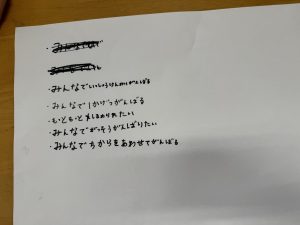 ・みんなでいっしょうけんめいがんばる
・みんなで1かげつがんばる
・もっともっとなかよくなりたい
・みんなでがっそうがんばりたい
・みんなでちからをあわせてがんばる